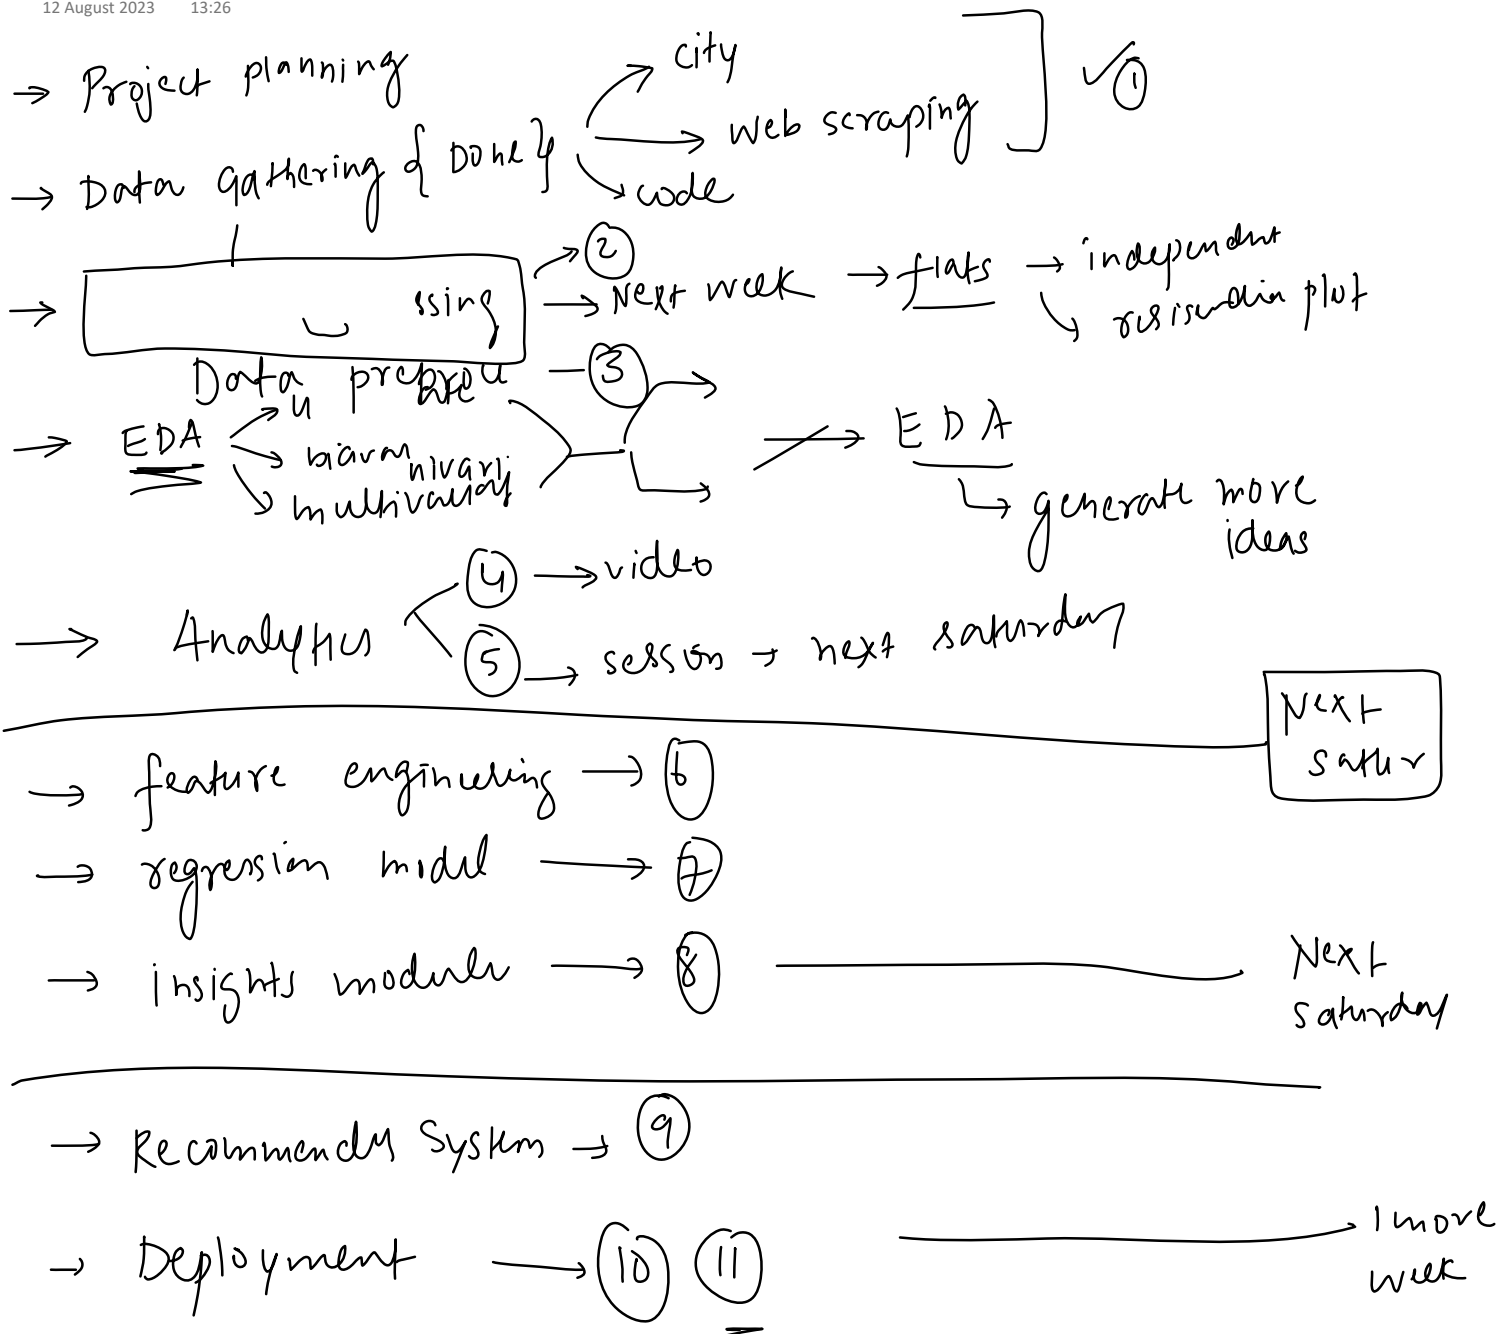 12 August 2023 13:26
→ Project planning
→ Data Gathering { Done }
→ city
→ web scraping
→ code
✓ 1
→ Data preprocessing
→ 2
→ Next week → flats → independent
3
→ EDA
→ multivariat
→ EDA
→ generate more
ideas
→ Analytics
4 → video
5 → session → next saturday
Next
satur
→ feature engineering → 6
→ regression model → 7
→ insights module → 8
Next
saturday
→ Recommender System → 9
→ Deployment → 10 11
1 more
week